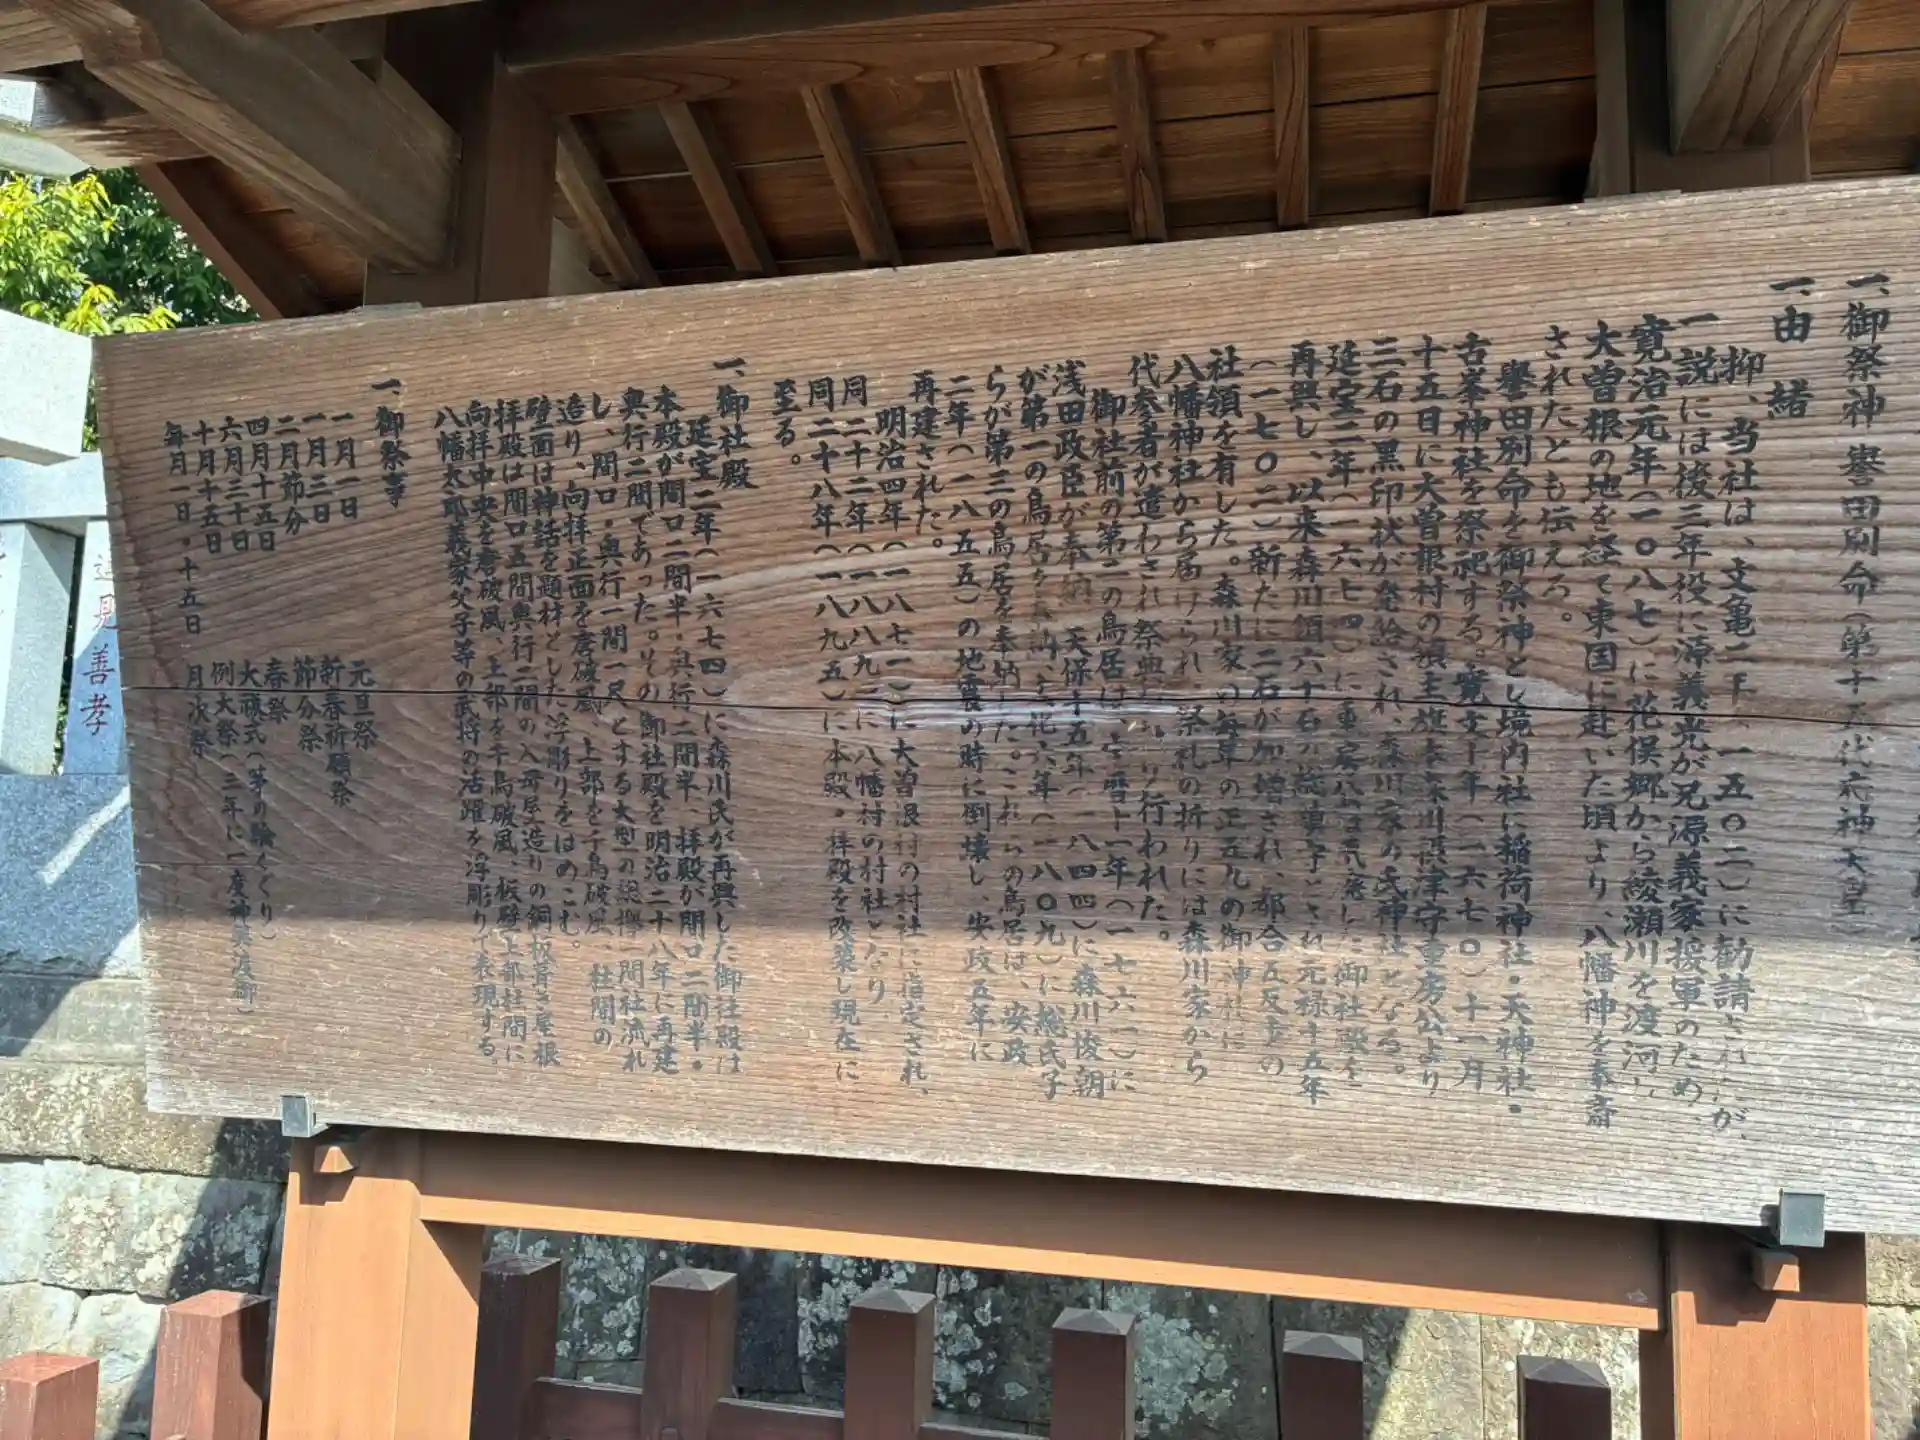 一、御祭神 誉田別命(第十五代応神天皇)
一、由緒
抑、当社は、文亀二年(一五〇二)に勧請されたが、
一説には後三年役に源義光が兄源義家援軍のため、
寛治元年(一〇八七)に花俣郷から綾瀬川を渡河し
大曽根の地を経て東国に赴いた頃より、八幡神を奉斎
されたとも伝える。
誉田別命を御祭神とし境内社に稲荷神社・天神社・
古峯神社を祭祀する。寛文十年(一六七〇)十一月
十五日に大曽根村の領主旗本森川摂津守重房公より
三石の黒印状が発給され、森川家の氏神社となる。
延宝二年(一六七四)に重房公は荒廃した御社殿を
再興し、以来森川領六十石の総鎮守とされ元禄十五年
(一七〇二)新たに二石が加増され、都合五反歩の
社領を有した。森川家の毎年の正五九の御神社に
八幡神社から届けられ祭礼の折りには森川家から
代参者が遣わされ祭典が執り行われた。
御社前の第二の鳥居は、宝暦十一年(一七六一)に
浅田政臣が奉納、天保十五年(一八四四)に森川俊朝
が第一の鳥居を奉納、文化六年(一八〇九)に総氏子
らが第三の鳥居を奉納した。これらの鳥居は、安政
二年(一八五五)の地震の時に倒壊し、安政五年に
再建された。
明治四年(一八七一)に大曽根村の村社に指定され、
同二十二年(一八八九)に八幡村の村社となり
同二十八年(一八九五)に本殿・拝殿を改築し現在に
至る。
一、御社殿
延宝二年(一六七四)に森川氏が再興した御社殿は
本殿が間口二間半・奥行二間半、拝殿が間口二間半・
奥行二間であった。その御社殿を明治二十八年に再建
し、間口・奥行一間一尺とする大型の総欅一間社流れ
造り、向拝正面を唐破風、上部を千鳥破風、柱間の
壁面は神話を題材とした浮彫りをはめこむ。
拝殿は間口五間奥行二間の入母屋造りの銅板葺き屋根
向拝中央を唐破風、上部を千鳥破風、板壁上部柱間に
八幡太郎義家父子等の武将の活躍を浮彫りで表現する。
一、御祭事
一月一日 元旦祭
一月三日 新春祈願祭
二月節分 節分祭
四月十五日 春祭
六月三十日 大祓式(茅の輪くぐり)
十月十五日 例大祭(三年に一度神輿渡御)
毎月一日・十五日 月次祭
見善孝